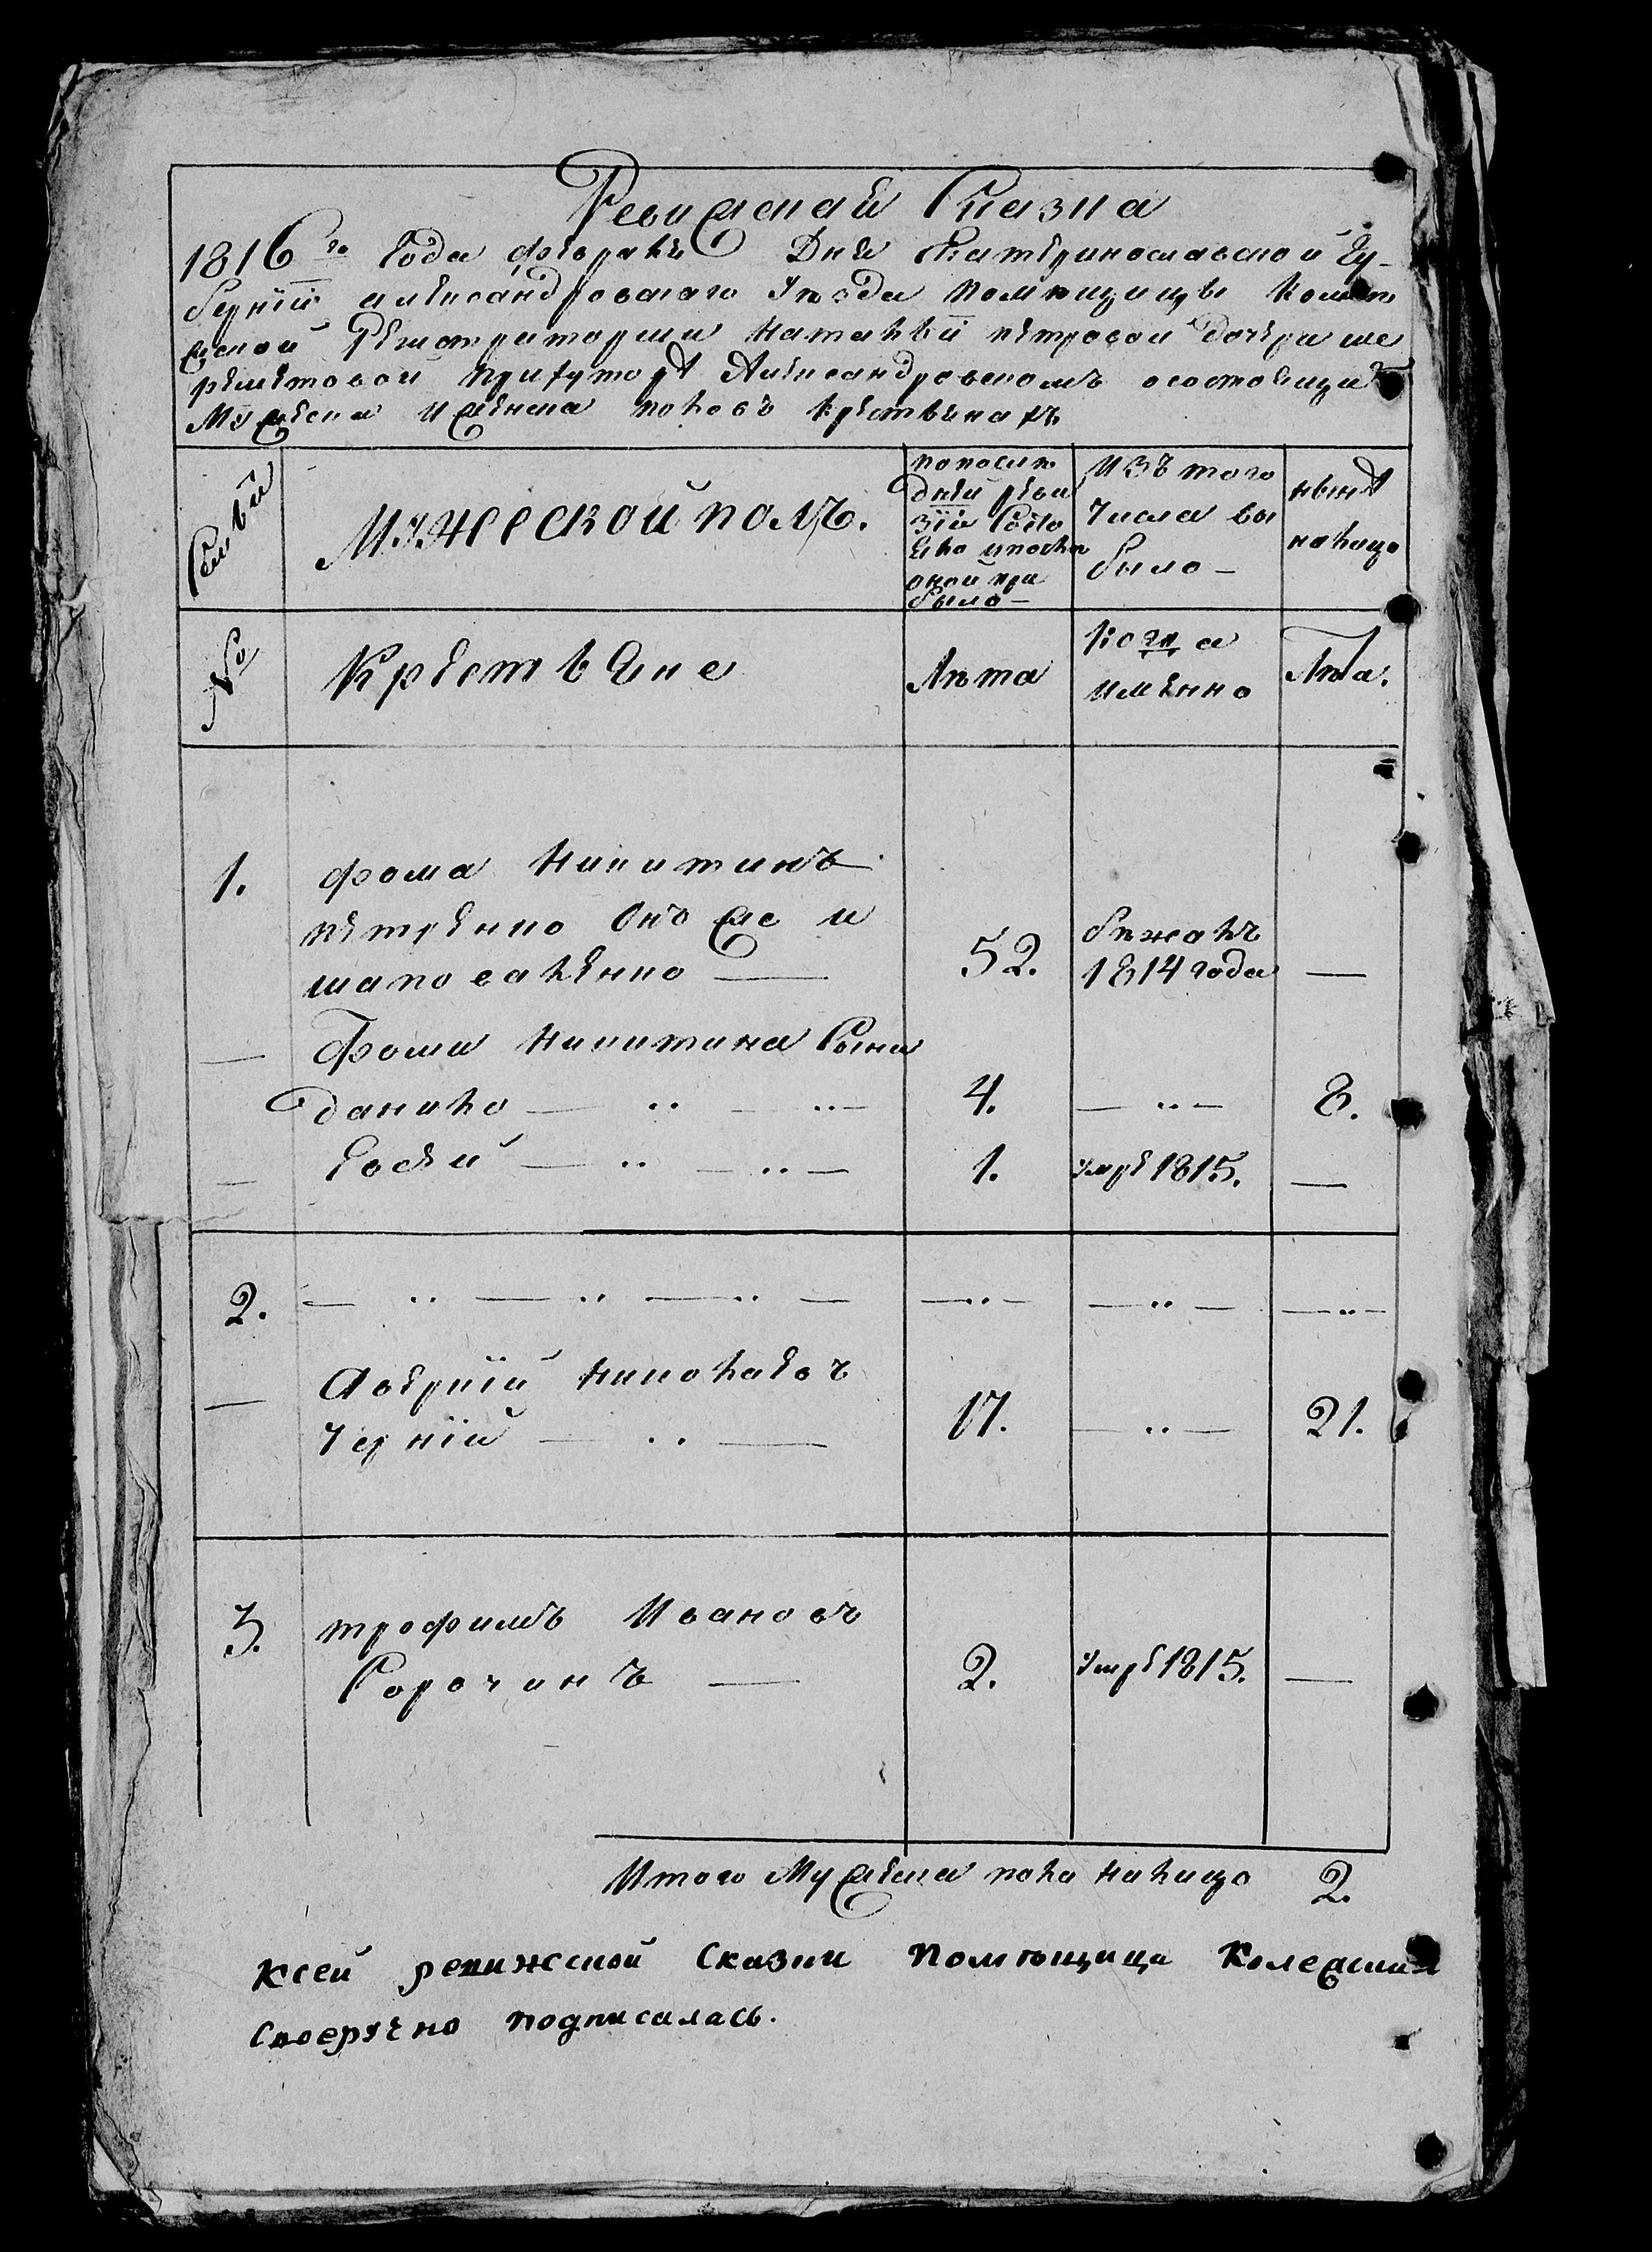 Ревижская Сказка
1816го Года февраля Дня Екатеринославской Гу-
берніи александровскаго Уезда помѣщицы колеж
ской Регистраторши Наталіи петровой дочери ше
реметовой при хуторѣ Александровскомъ осостоящихъ
Мужеска иженска половъ крестьянахъ
Семьи
Мужеской полъ.
попослѣ
дней реви
зіи Состо
яло ипослѣ
оной при
было —
изъ того
числа вы
было —
нынѣ
налицо
№
Крестьяне
Лѣта
Когда
имянно
Лѣта.
1. фома Никитинъ
петренко онъ же и
шаповаленко — 52. бѣжалъ 1814 года —
— Фомы Никитина Сыны
данило — ·· — ··— 4. — ··— 8.
— Евсей — ·· — ·· — 1. умре 1815. —
2. — ·· — ·· — ·· — —··— — ·· — —··—
— Аверкій Николаевъ
Черній — ·· — 17. — ·· — 21.
3. трофимъ Ивановъ
Сорочанъ — 2. Умре 1815. —
Итого Мужеска пола налицо 2.
Ксей ревижской Сказки Помѣщица Колежская
своеручно подписалась.